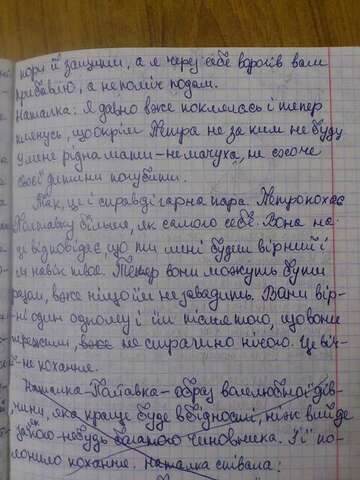 порі її защитій, а я через себе ворогів вам
прибавлю, а не поміч подам.
Наталка: Я давно вже поклялась і тепер
клянусь, що окрім Петра не за ким не буду
У мене рідна мати – не мачуха, не схоче
своєї дитини погубити.
Так, це і справді гарна пара. Петро кохає
Полтавку більше, як самого себе. Вона на
це відповідає, що ти мені будеш вірний і
я навік твоя. Тепер вони можуть бути
разом, вже ніщо їм не завадить. Вони вір-
ні один одному і їм після того, що вони
пережили, вже не страшно нічого. Це віч-
не кохання.
Наталка-Полтавка – образ волелюбної дів-
чини, яка краще буде в бідності, ніж вийде
за якого-небудь багатого чиновника. Її по-
лонило кохання. Наталка співала: